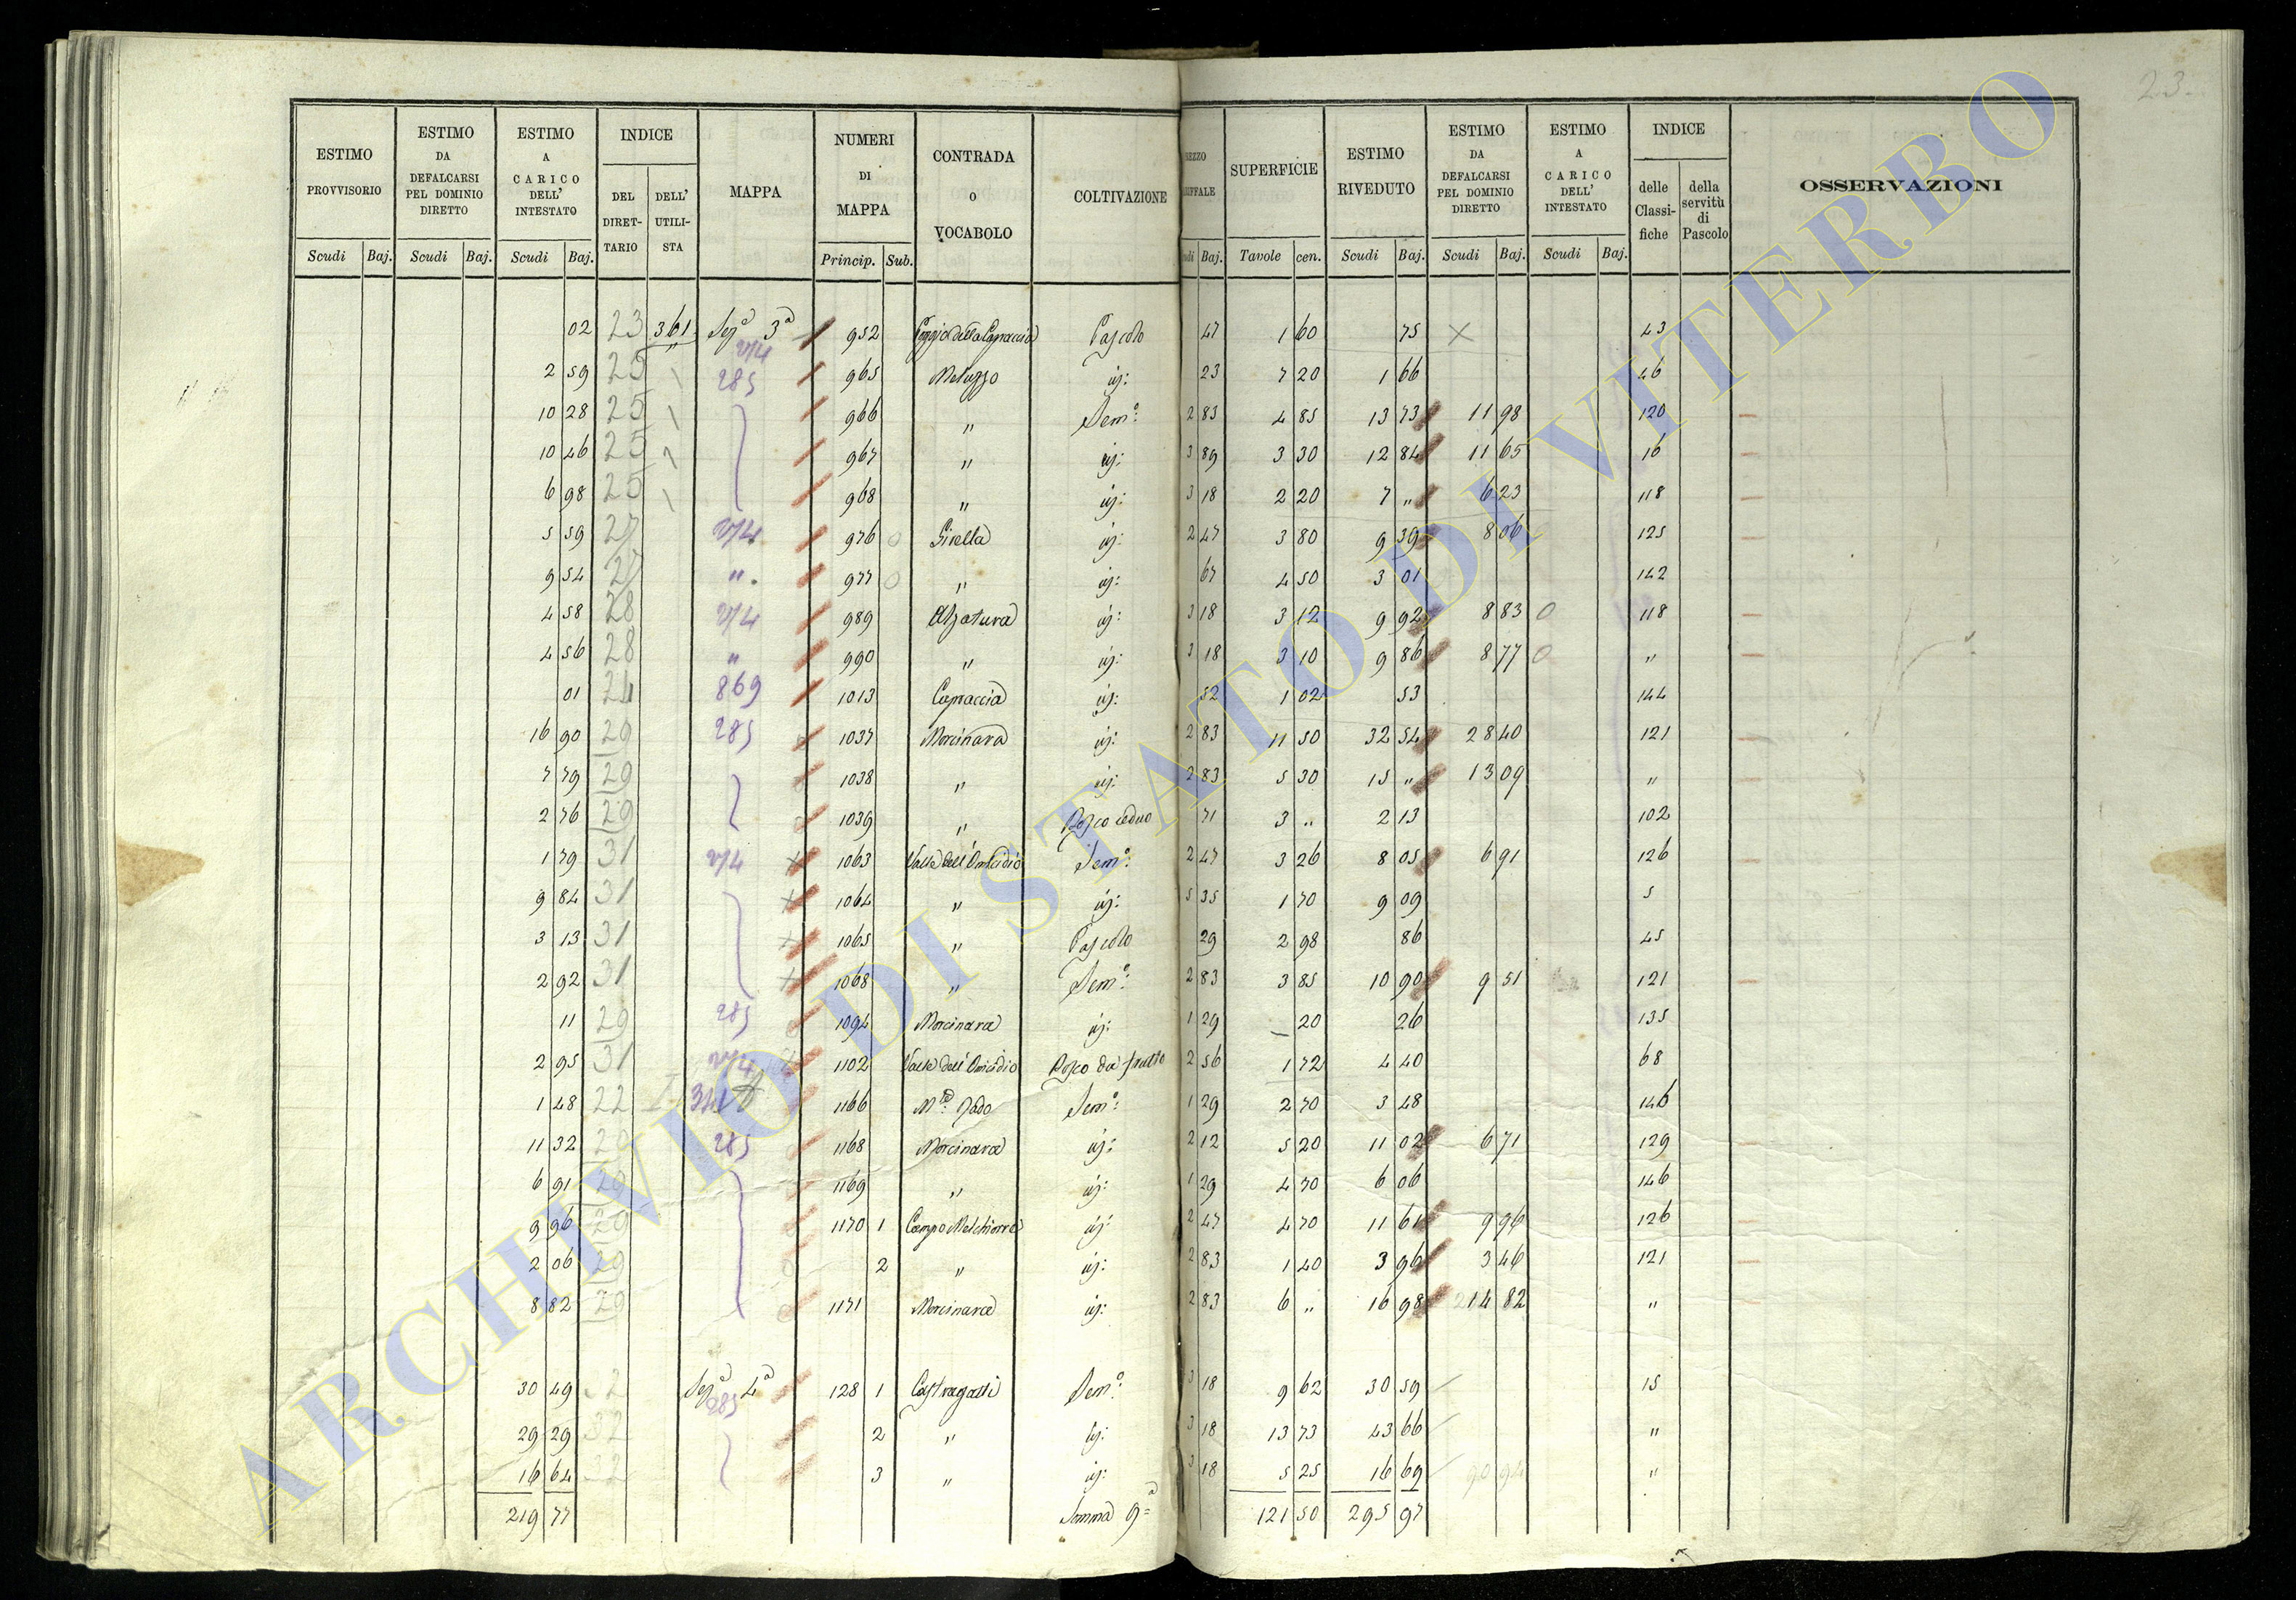 23
ESTIMO PROVVISORIO Scudi Baj.
ESTIMO DA DEFALCARSI PEL DOMINIO DIRETTO Scudi Baj.
ESTIMO A CARICO DELL' INTESTATO Scudi Baj.
INDICE DEL DIRET- TARIO DELL' UTILI- STA
MAPPA
NUMERI DI MAPPA Princip. Sub.
CONTRADA O VOCABOLO
COLTIVAZIONE
SUPERFICIE Tavole cen.
ESTIMO RIVEDUTO Scudi Baj.
ESTIMO DA DEFALCARSI PEL DOMINIO DIRETTO Scudi Baj.
ESTIMO A CARICO DELL' INTESTATO Scudi Baj.
INDICE delle Classi- fiche della servitù di Pascolo
OSSERVAZIONI
02 23 361 Sezª 3ª 952 Pascolo 47 1 60 75 43
2 59 25 285 965 Meluzzo id: 23 7 20 1 66 46
10 28 25 966 " Semº: 2 83 4 85 13 73 11 98 120
10 46 25 967 " id: 3 89 3 30 12 84 11 65 16
6 98 25 968 " id: 3 18 2 20 7 " 6 23 118
5 59 27 2/4 976 Girella id: 2 47 3 80 9 39 8 06 125
9 54 27 " 977 " id: 67 4 50 3 01 142
4 58 28 2/4 989 Alzatura id: 3 18 3 12 9 92 8 83 118
4 56 28 " 990 " id: 3 18 3 10 9 86 8 77 "
01 24 869 1013 Capraccia id: 52 1 02 53 144
16 90 29 285 1037 Morcinara id: 2 83 11 50 32 54 28 40 121
7 79 29 1038 " id: 2 83 5 30 15 " 13 09 "
2 76 29 1039 " Bosco ceduo 71 3 " 2 13 102
1 79 31 2/4 1063 Valle dell'Omicidio Semº: 2 47 3 26 8 05 6 91 126
9 84 31 1064 " id: 5 35 1 70 9 09 5
3 13 31 1065 " Pascolo 29 2 98 86 45
2 92 31 1068 " Semº: 2 83 3 85 10 90 9 51 121
11 29 285 1094 Morcinara id: 1 29 20 26 135
2 95 31 2/4 1102 Valle dell'Omicidio Bosco da frutto 2 56 1 72 4 40 68
1 48 22 1166 Semº: 1 29 2 70 3 48 146
11 32 29 285 1168 Morcinara id: 2 12 5 20 11 02 6 71 129
6 91 29 1169 " id: 1 29 4 70 6 06 146
9 96 29 1170 1 Campo Melchiorre id: 2 47 4 70 11 61 9 96 126
2 06 29 2 " id: 2 83 1 40 3 96 3 46 121
8 82 29 1171 Morcinara id: 2 83 6 " 16 98 14 82 "
30 49 32 Sezª 4ª 285 128 1 Castragatti Semº: 3 18 9 62 30 59 15
29 29 32 2 " id: 3 18 13 73 43 66 "
16 64 32 3 " id: 3 18 5 25 16 69 "
219 77 Somma 9ª 121 50 295 97
ARCHIVIO DI STATO DI VITERBO